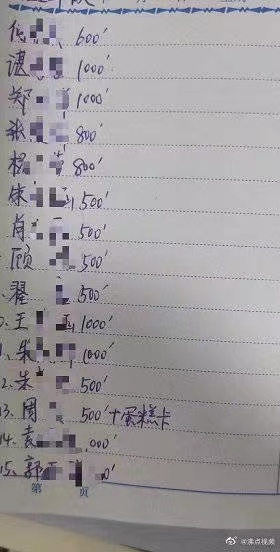 600'
谌 1000'
郑 1000'
张 800'
杨 800'
朱 500'
肖 500'
顾 500'
翟 500'
王 1000'
朱 1000'
2. 朱 500'
13. 周 500' + 蛋糕卡
14. 袁 000'
15. 郭 0'
第 页
@沸点视频